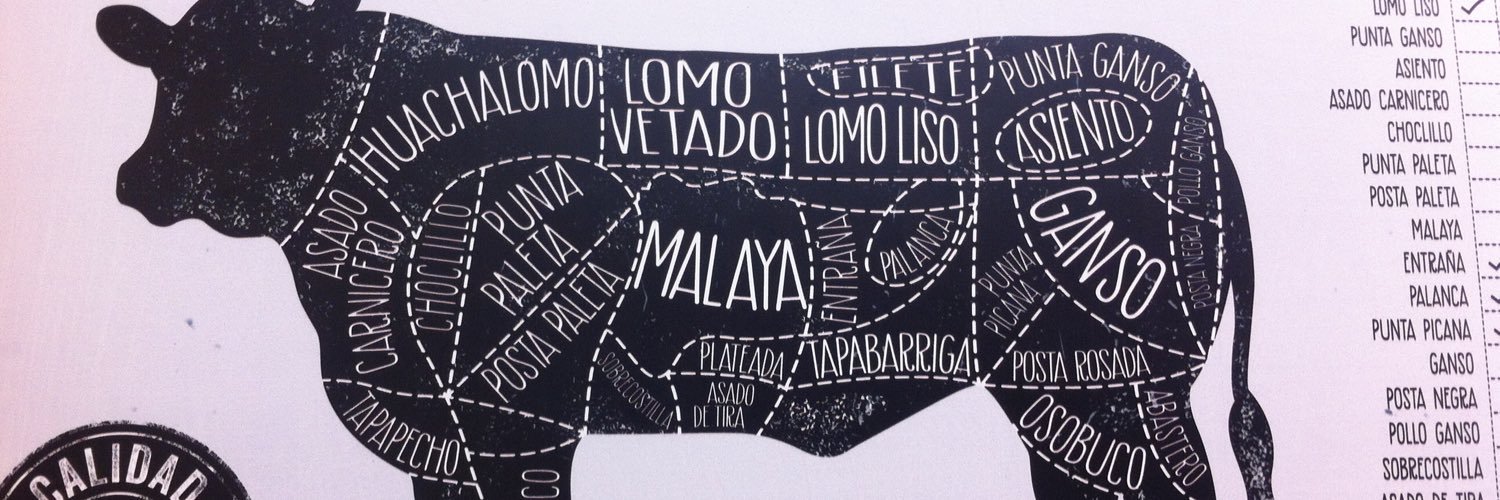 HUACHALOMO
LOMO
VETADO
FILETE
LOMO LISO
PUNTA GANSO
ASIENTO
ASADO
CARNICERO
CHOCLILLO
PUNTA
PALETA
POSTA PALETA
MALAYA
ENTRAÑA
PALANCA
PUNTA
PICANA
GANSO
POSTA NEGRA / POLLO GANSO
PLATEADA
TAPABARRIGA
POSTA ROSADA
SOBRECOSTILLA
ASADO
DE TIRA
TAPAPECHO
CO
OSOBUCO
ABASTERO
CALIDAD
LOMO LISO
PUNTA GANSO
ASIENTO
ASADO CARNICERO
CHOCLILLO
PUNTA PALETA
POSTA PALETA
MALAYA
ENTRAÑA
PALANCA
PUNTA PICANA
GANSO
POSTA NEGRA
POLLO GANSO
SOBRECOSTILLA
ASADO DE TIRA